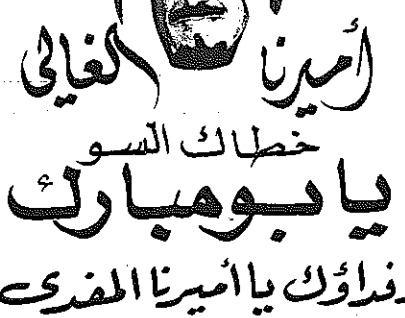 أميرنا الغالي
خطاك السو
يا بومبارك
رفداؤك يا أميرنا المفدى